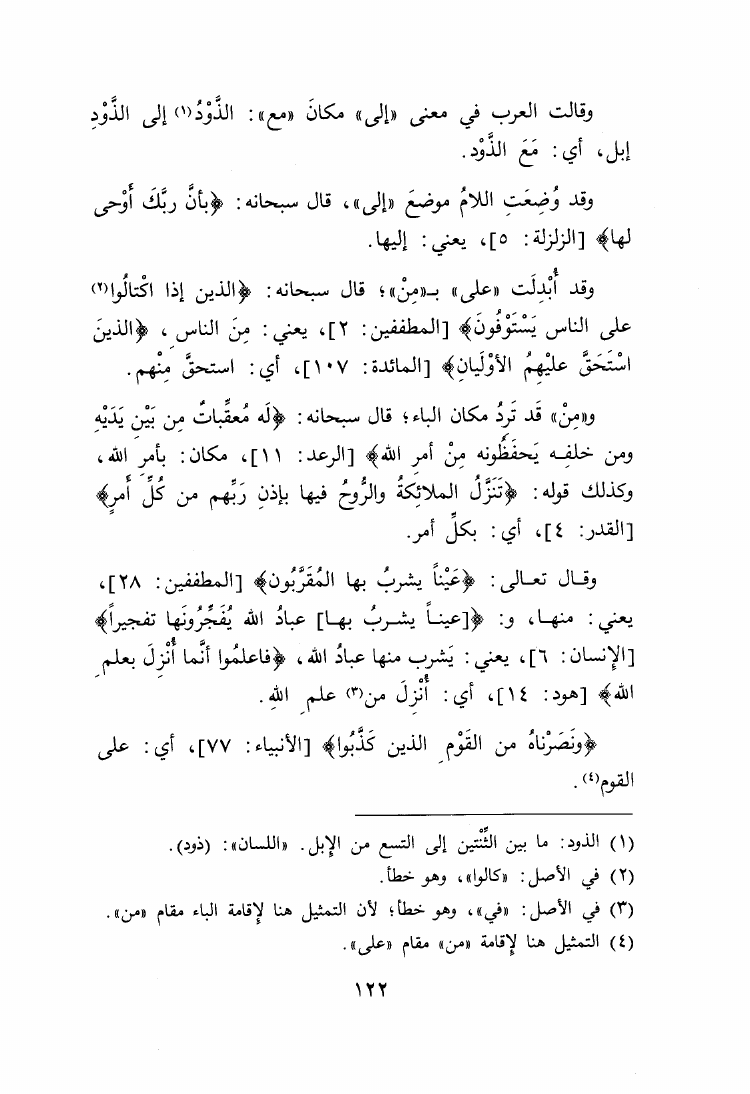 وقالت العرب في معنى «إلى» مكانَ «مع»: الذَّوْدُ(١) إلى الذَّوْدِ
إبل، أي: مَعَ الذَّوْد.
وقد وُضِعَتِ اللامُ موضعَ «إلى»، قال سبحانه: ﴿بأنَّ ربَّكَ أَوْحى
لها﴾ [الزلزلة: ٥]، يعني: إليها.
وقد أُبْدِلَت «على» بـ«مِنْ»؛ قال سبحانه: ﴿الذين إذا اكْتالُوا(٢)
على الناس يَسْتَوْفُونَ﴾ [المطففين: ٢]، يعني: مِنَ الناسِ، ﴿الذينَ
اسْتَحَقَّ عليْهِمُ الأوْلَيانِ﴾ [المائدة: ١٠٧]، أي: استحقَّ مِنْهم.
و«مِنْ» قَد تَرِدُ مكان الباء؛ قال سبحانه: ﴿لَه مُعقِّباتٌ مِن بَيْنِ يَدَيْهِ
ومن خلفِـه يَحفَظُونه مِنْ أمرِ الله﴾ [الرعد: ١١]، مكان: بأمرِ الله،
وكذلك قوله: ﴿تَنَزَّلُ الملائِكةُ والرُّوحُ فيها بإذنِ رَبِّهم من كُلِّ أمرٍ﴾
[القدر: ٤]، أي: بكلِّ أمر.
وقـال تعـالى: ﴿عَيْناً يشربُ بها المُقَرَّبُون﴾ [المطففين: ٢٨]،
يعني: منهـا، و: ﴿[عينـاً يشـربُ بهـا] عبادُ الله يُفَجِّرُونَها تفجيراً﴾
[الإنسان: ٦]، يعني: يَشرب منها عبادُ الله، ﴿فاعلمُوا أنَّما أُنْزِلَ بعلمِ
الله﴾ [هود: ١٤]، أي: أُنْزلَ من(٣) علمِ اللهِ.
﴿ونَصَرْناهُ من القَوْمِ الذين كَذَّبُوا﴾ [الأنبياء: ٧٧]، أي: على
القوم(٤).
(١) الذود: ما بين الثِّنْتين إلى التسع من الإبل. «اللسان»: (ذود).
(٢) في الأصل: «كالوا»، وهو خطأ.
(٣) في الأصل: «في»، وهو خطأ؛ لأن التمثيل هنا لإقامة الباء مقام «من».
(٤) التمثيل هنا لإقامة «من» مقام «على».
١٢٢